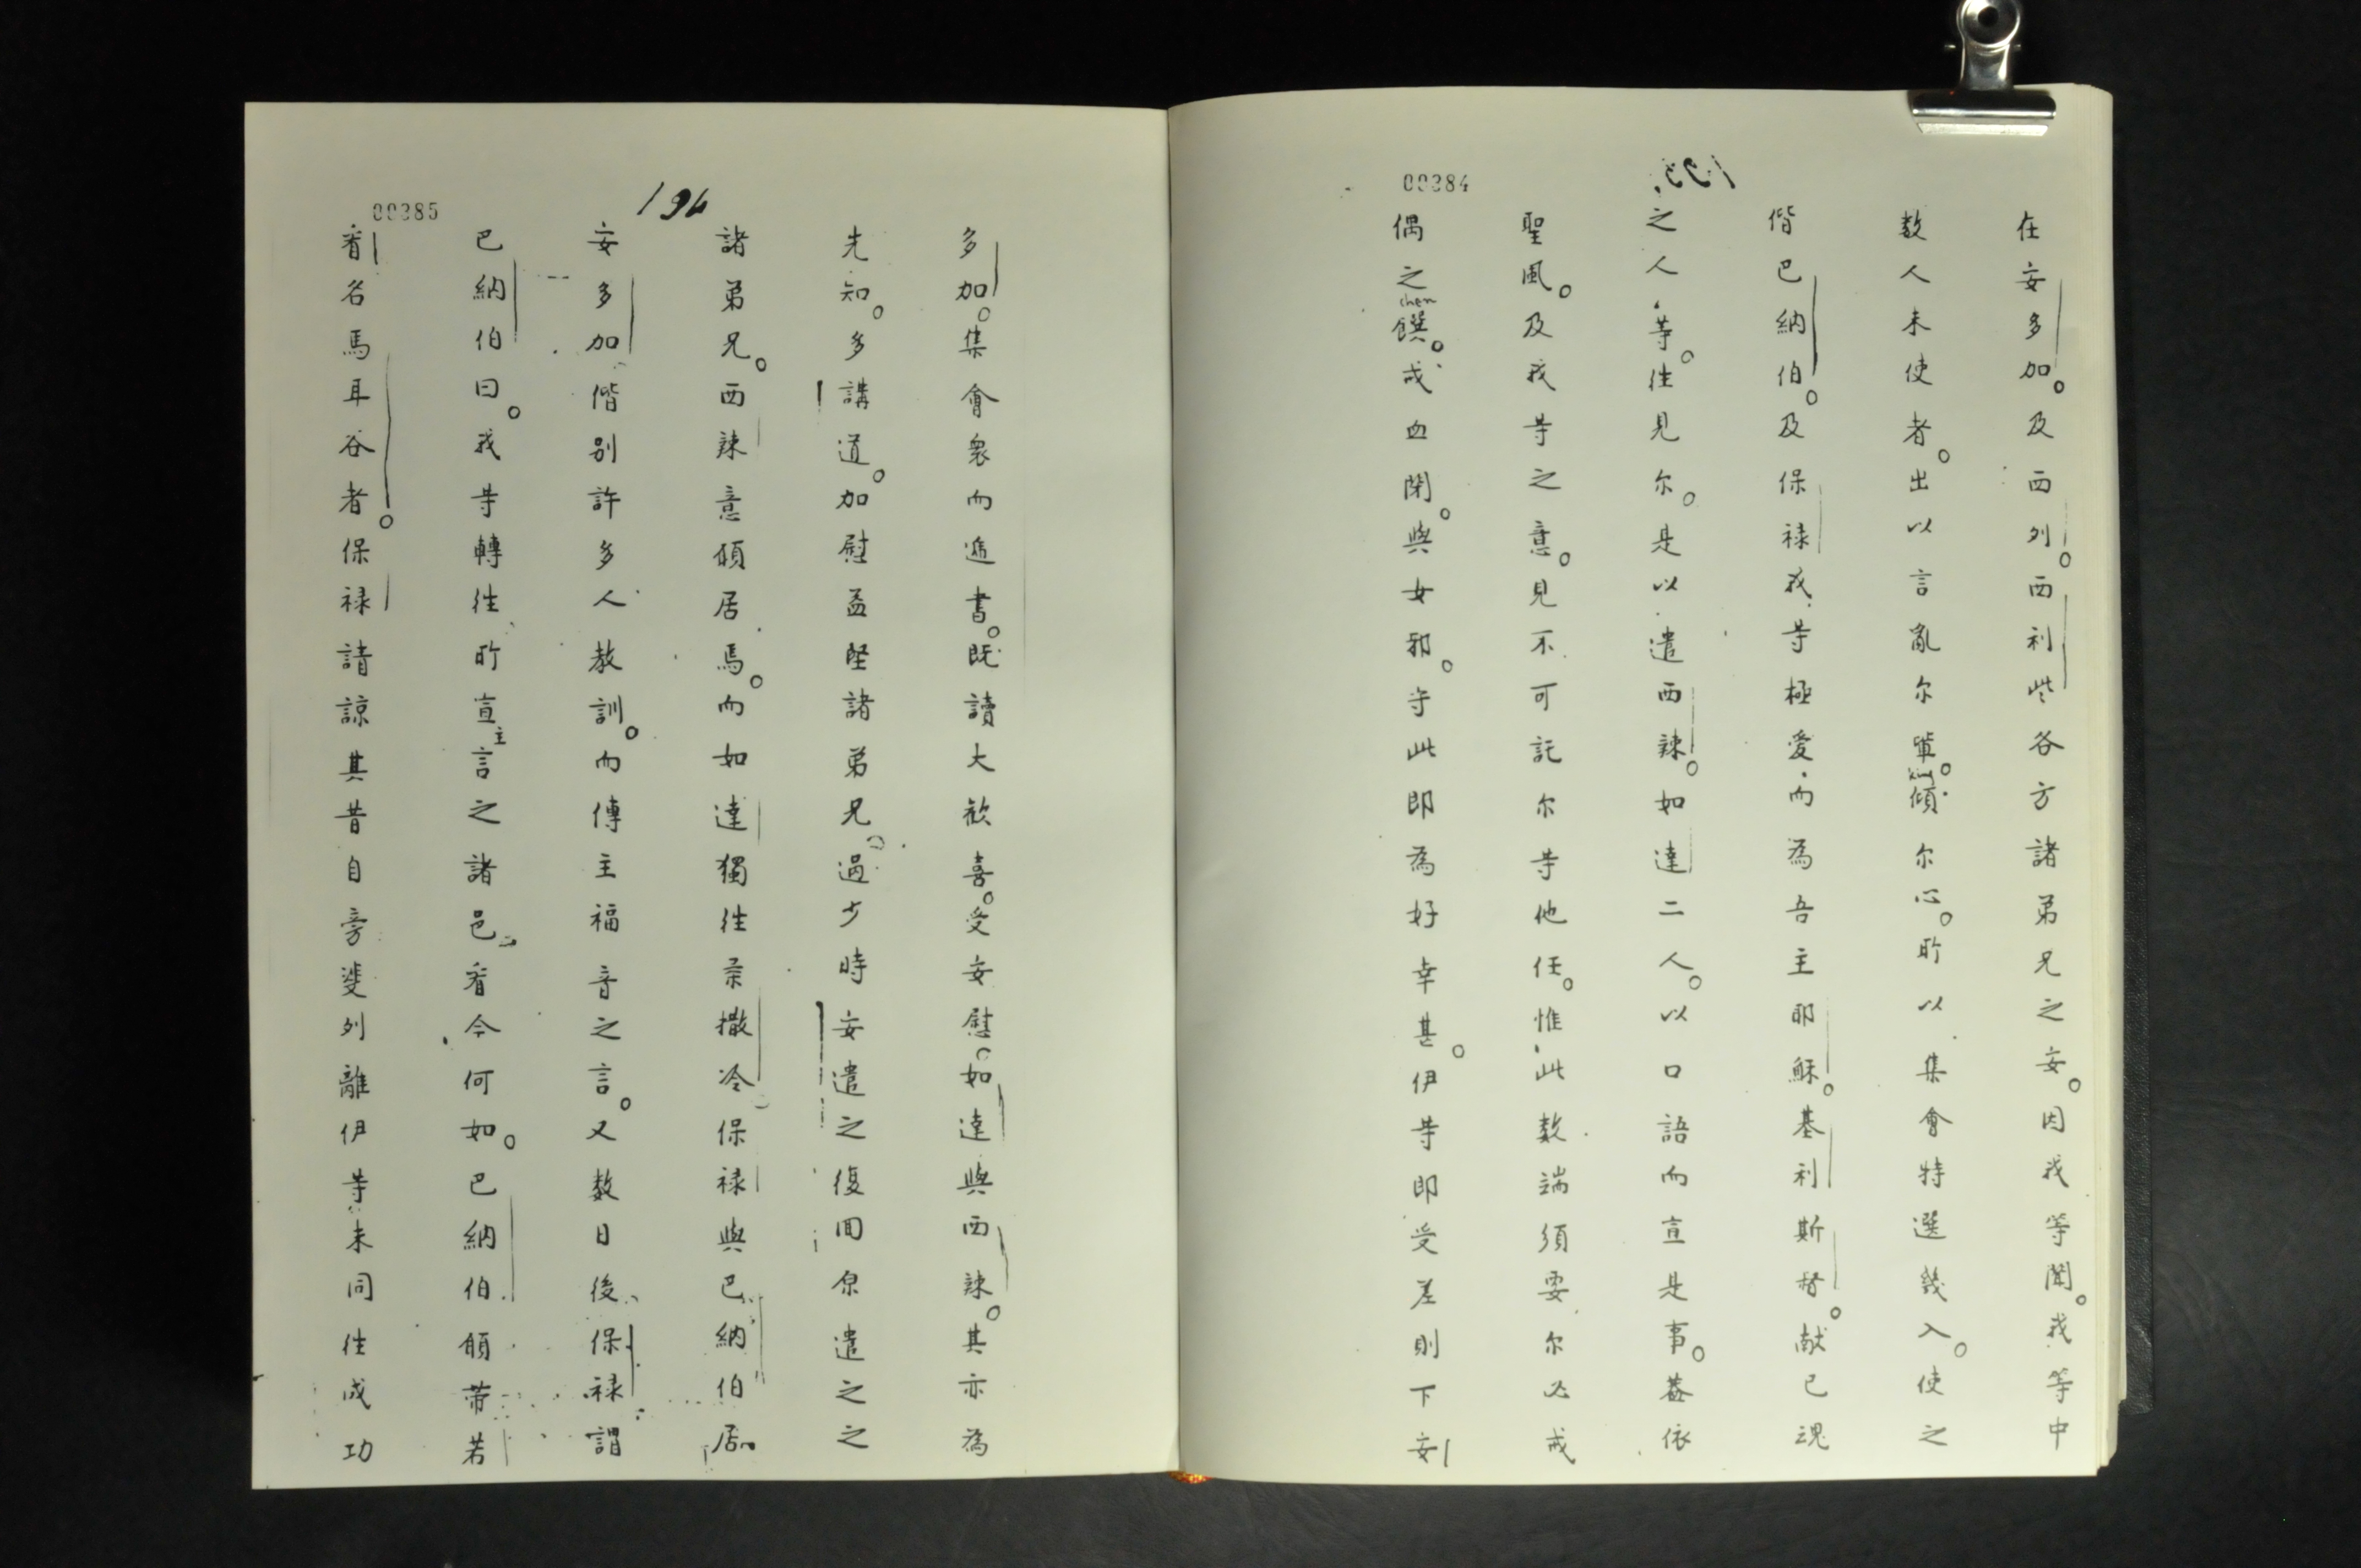 00384
在安多加。及西列。西利些各方諸弟兄之安。因我等聞。我等中
数人未使者。出以言亂尔軰。傾尔心。所以集會特選幾入。使之
偕巴納伯。及保禄我等極愛而為吾主耶穌。基利斯督。献已魂
之人等。徃見尔。是以遣西辣。如達二人。以口語而宣是事。葢依
聖風。及我等之意。見不可託尔等他任。惟此数端須要尔必戒
偶之饌。戒血閑。與女邪。守此即為好幸甚。伊等即受差則下安
chen
00385
194
多加。集會衆而逓書。既讀大歓喜。受安慰。如達與西辣。其亦為
先知。多講道。加慰益堅諸弟兄。過少時安遣之復囬原遣之之
諸弟兄。西辣意傾居焉。而如達獨徃柔撒冷保禄與巴納伯居
安多加偕别許多人教訓。而傳主福音之言。又数日後保禄謂
巴納伯曰。我等轉徃所宣主言之諸邑。看今何如。巴納伯願帯若
看名馬耳谷者。保禄請諒其昔自旁斐列離伊等未同徃成功